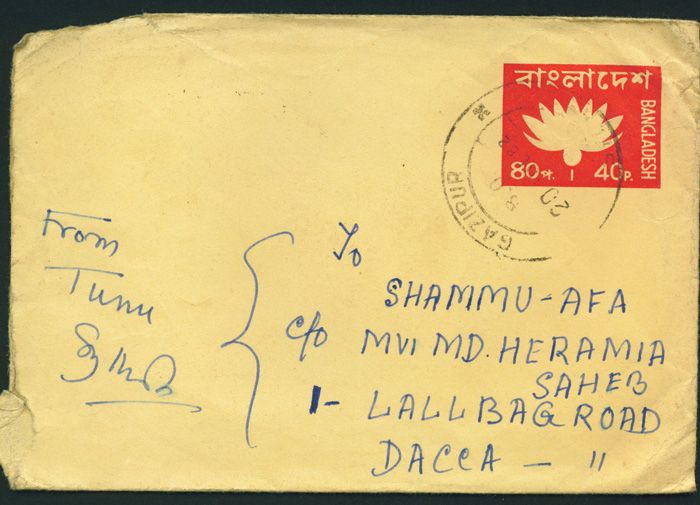 বাংলাদেশ
BANGLADESH
৪০প. | 40P.
GAZIPUR
20
From
Tunu
To
SHAMMU-AFA
c/o MVI MD. HERAMIA
SAHEB
1- LALLBAG ROAD
DACCA - "